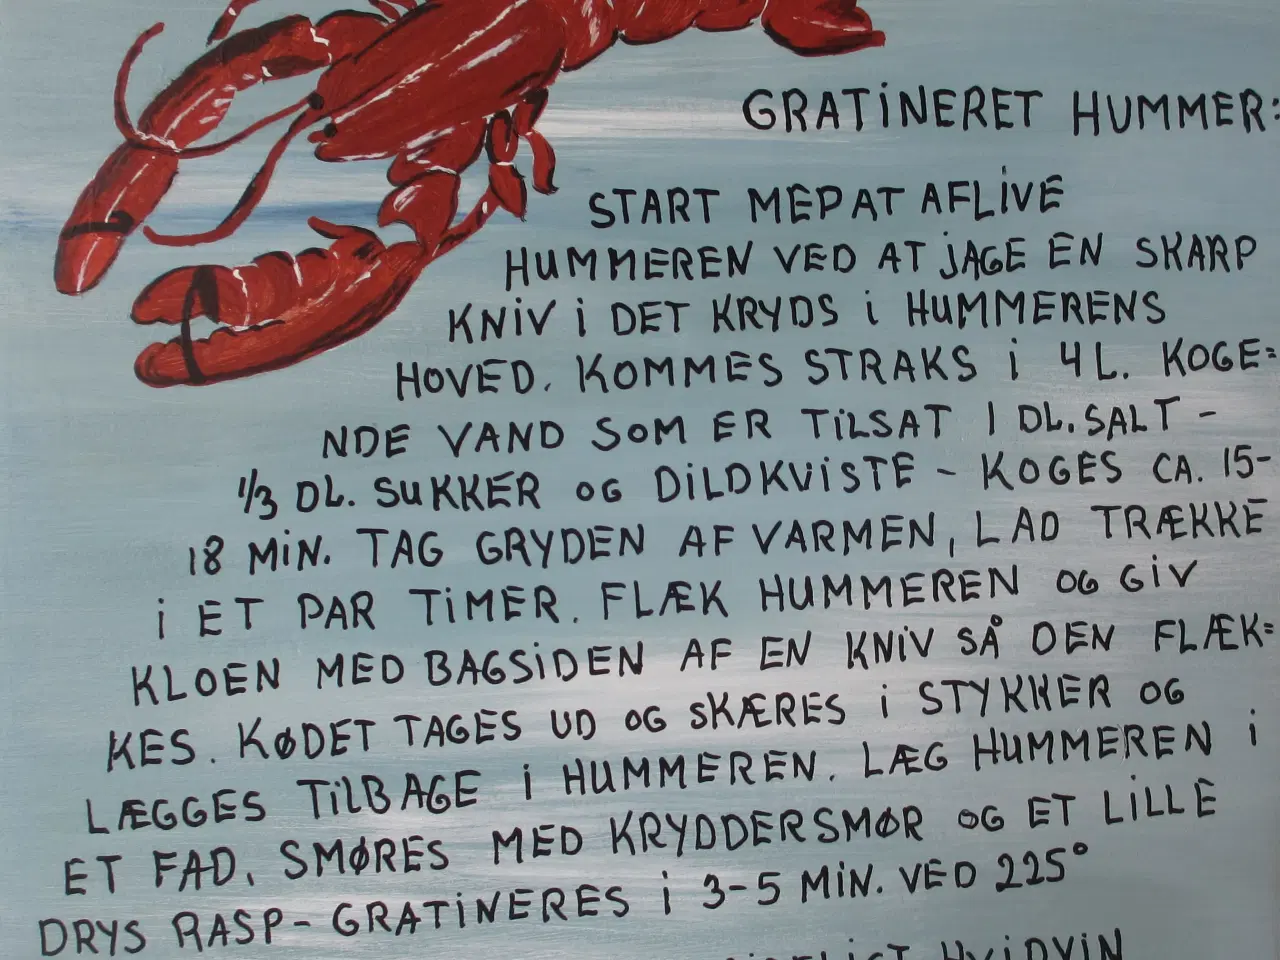 GRATINERET HUMMER:
START MED AT AFLIVE
HUMMEREN VED AT JAGE EN SKARP
KNIV I DET KRYDS I HUMMERENS
HOVED. KOMMES STRAKS I 4 L. KOGE=
NDE VAND SOM ER TILSAT 1 DL. SALT -
1/3 DL. SUKKER OG DILDKVISTE - KOGES CA. 15-
18 MIN. TAG GRYDEN AF VARMEN, LAD TRÆKKE
I ET PAR TIMER. FLÆK HUMMEREN OG GIV
KLOEN MED BAGSIDEN AF EN KNIV SÅ DEN FLÆK=
KES. KØDET TAGES UD OG SKÆRES I STYKKER OG
LÆGGES TILBAGE I HUMMEREN. LÆG HUMMEREN I
ET FAD. SMØRES MED KRYDDERSMØR OG ET LILLE
DRYS RASP- GRATINERES I 3-5 MIN. VED 225°
HVIDVIN